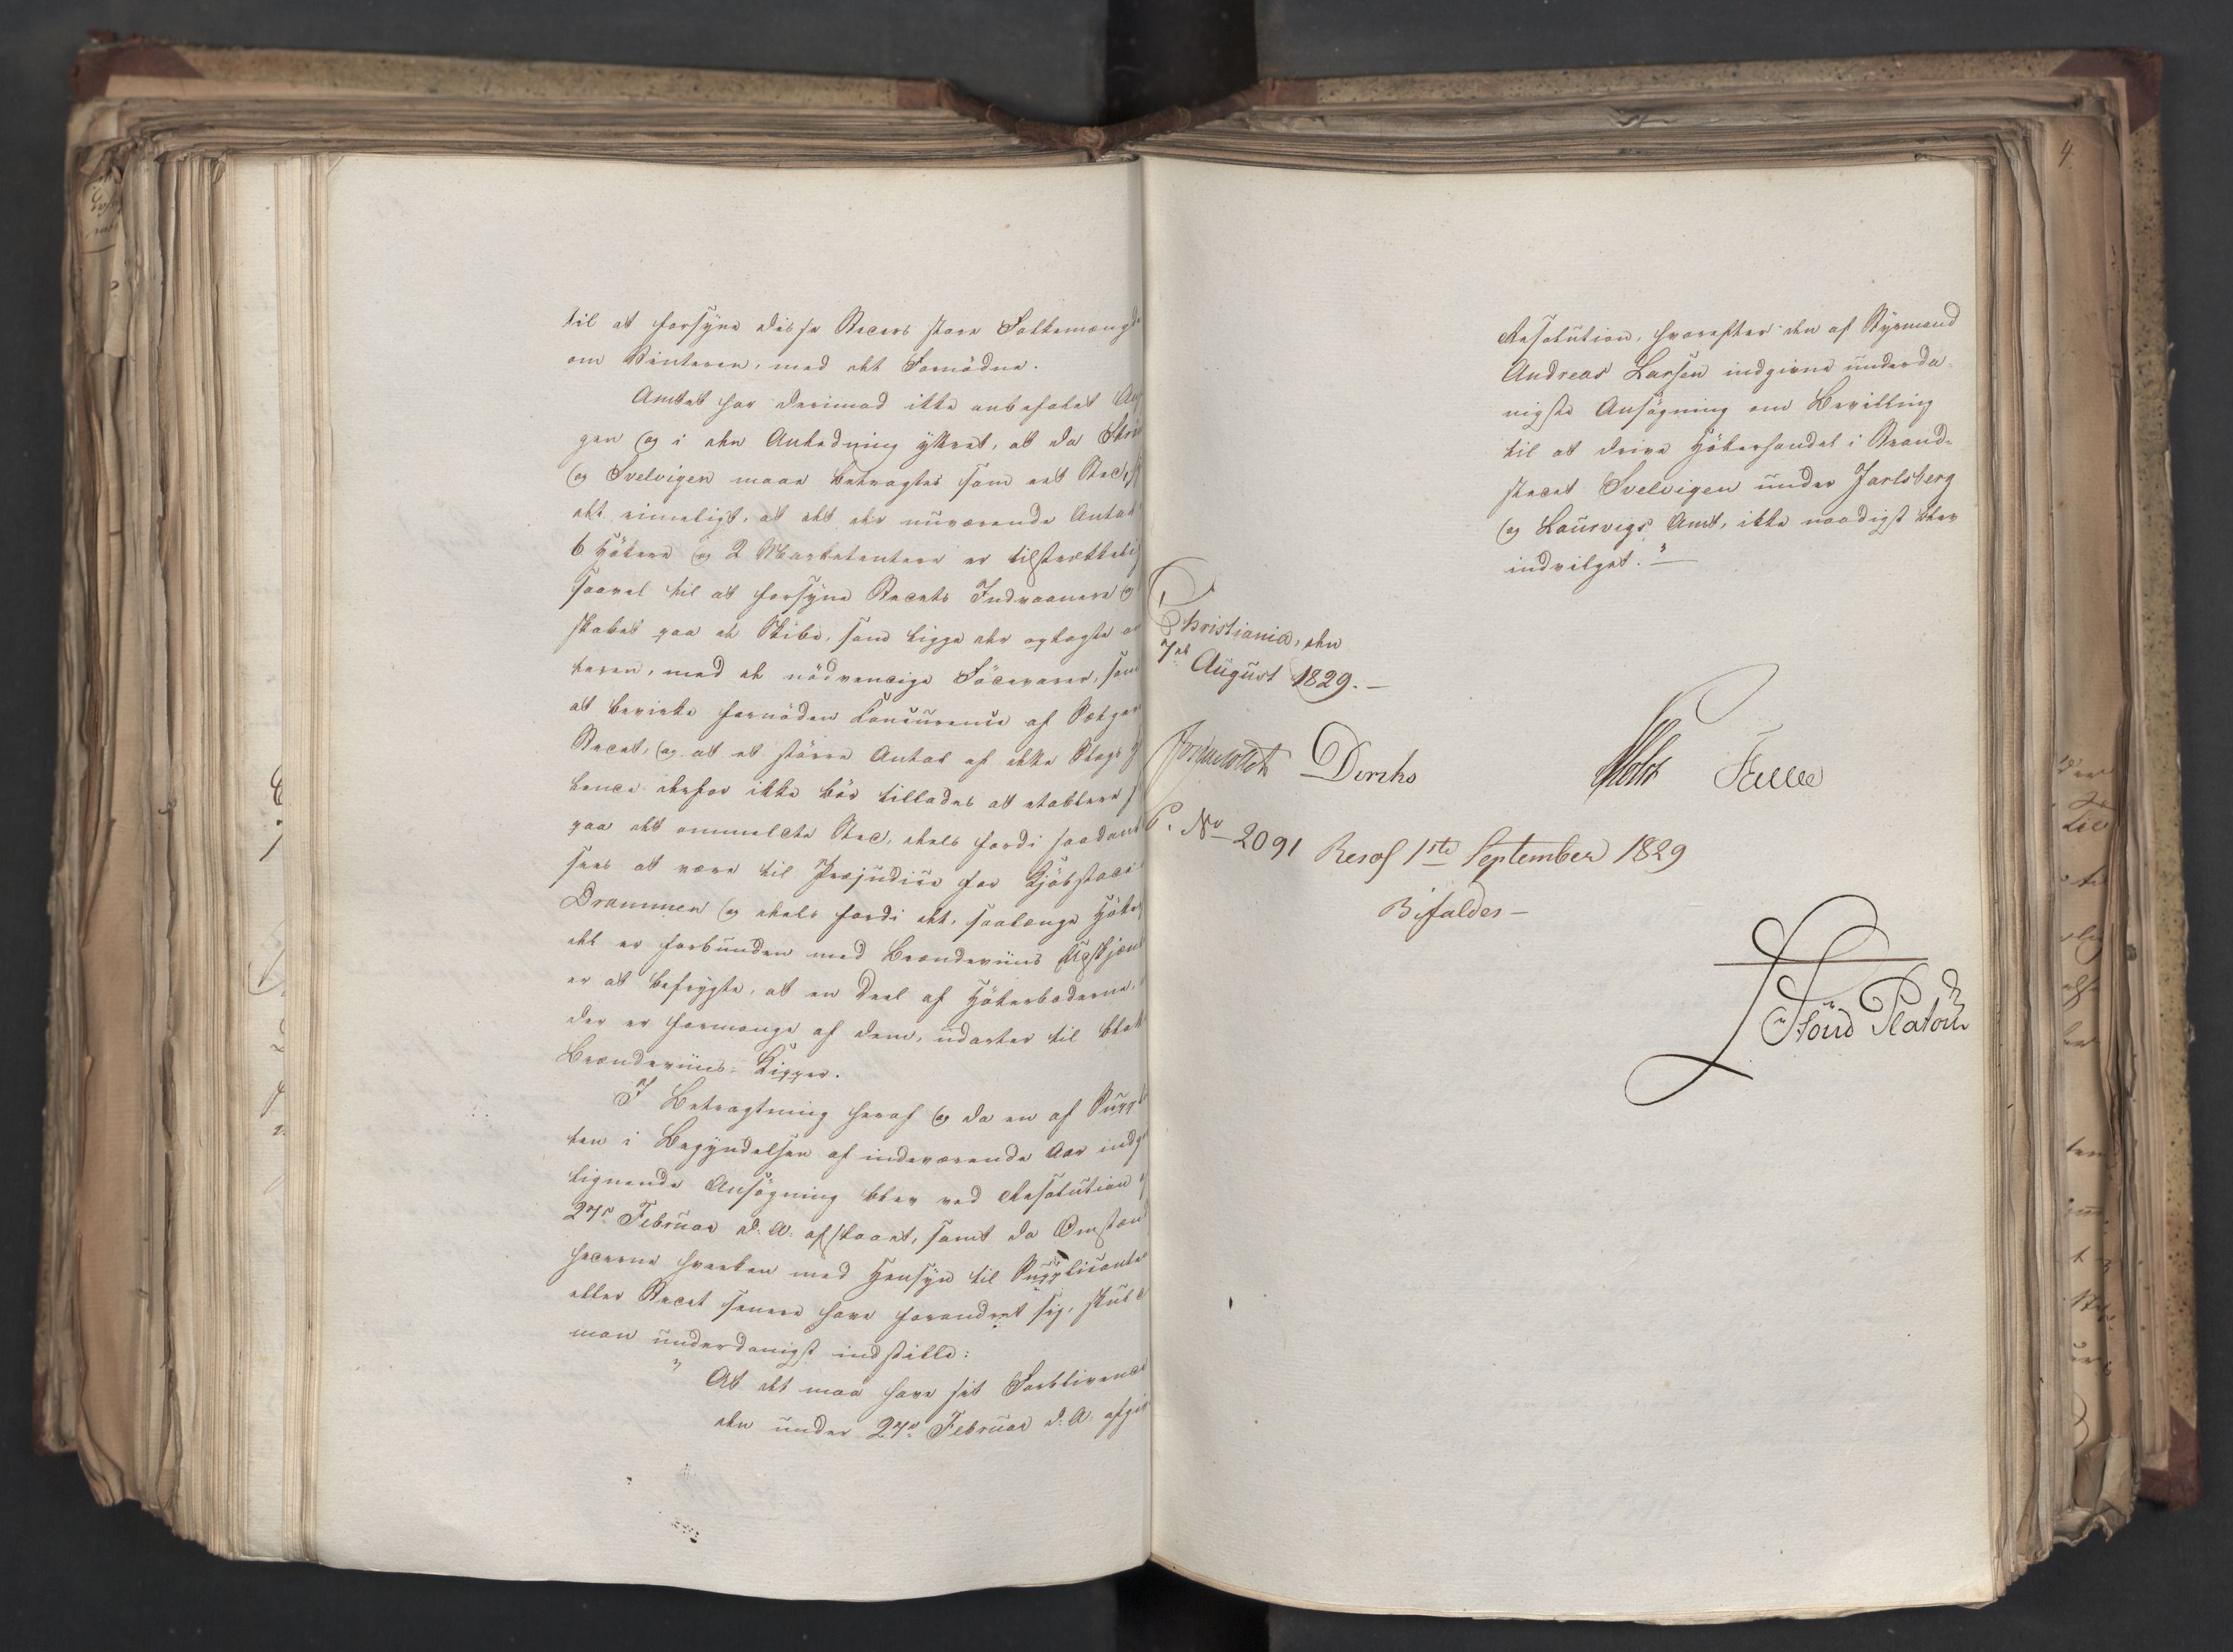 til at forsyne disse Steders store Folkemængde
om Vinteren, med det Fornödne.
Amtet har derimod ikke anbefalet An
gen og i den Anledning yttret, at da
og Svelvigen maae betragtes som eet Sted,
det rimeligt, at det der nuværende Antal
6 Hökere og 2 Marketentere er tilstrækkelig
saavel til at forsyne Stedets Indvaanere og
skabet paa de Skibe, som ligge der oplagte om
teren, med de nödvendige Födevarer, som
at bevirke fornöden Concurence af Sælgere
Stedet, og at et större Antal af dette Slags
lende derfor ikke bör tillades at etablere
paa det ommeldte Sted, deels fordi saadant
sees at være til Præjudice for Kjöbstaden
Drammen og deels fordi det, saalænge Höker
del er forbunden med Brændeviins Udskjænk
er at befrygte, at en Deel af Hökerboderne,
der er formange af dem, udarter til blot
Brændeviins-Kipper.
I Betragtning heraf og da en af Suppl
ten i Begyndelsen af indeværende Aar indg
lignende Ansögning blev ved Resolution
27de Februar d: A: afslaaet, samt da Omstæn
hederne hverken med Hensyn til Supplicanten
eller Stedet senere have forandret sig, skulde
man underdanigst indstille:
" At det maa have sit Forblivende
den under 27de Februar d: A. afgiv
Resolution, hvorefter den af Styrmand
Andreas Larsen indgivne underda-
nigste Ansögning om Bevilling
til at drive Hökerhandel i Strand-
stedet Svelvigen under Jarlsberg
og Laurvigs Amt, ikke naadigst blev
indvilget."
Christiania, den
7de August 1829.
Diriks
Holst
Falbe
P. No 2091
Resol 1ste September 1829
Bifaldes